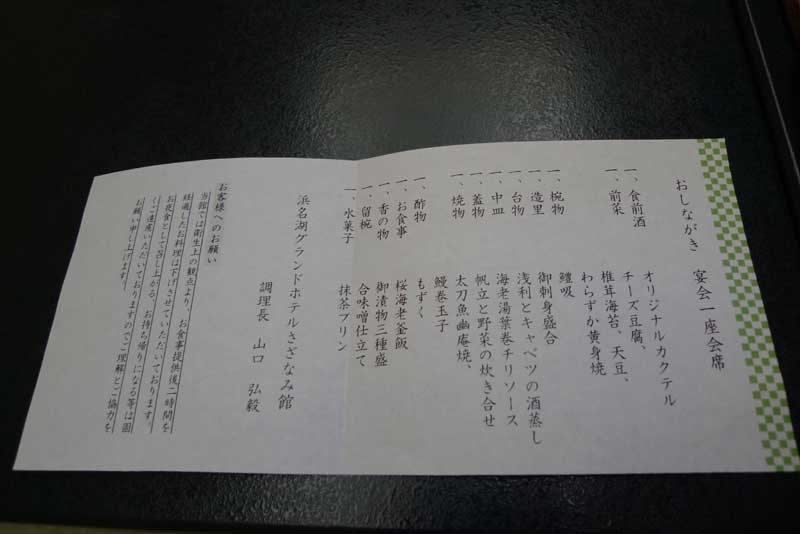 おしながき 宴会一座会席
一、食前酒 オリジナルカクテル
一、前菜 チーズ豆腐、
椎茸海苔、天豆、
わらずか黄身焼
一、椀物 鱧吸
一、造里 御刺身盛合
一、台物 浅利とキャベツの酒蒸し
一、中皿 海老湯葉巻チリソース
一、蓋物 帆立と野菜の炊き合せ
一、焼物 太刀魚幽庵焼、
鰻巻玉子
一、酢物 もずく
一、お食事 桜海老釜飯
一、香の物 御漬物三種盛
一、留椀 合味噌仕立て
一、水菓子 抹茶プリン
浜名湖グランドホテルさざなみ館
調理長 山口 弘毅
お客様へのお願い
当館では衛生上の観点より、お食事提供後二時間を
経過したお料理は下げさせていただいております。
お夜食として召し上がる、お持ち帰りになる等は固
くご遠慮いただいておりますのでご理解とご協力を
お願い申し上げます。